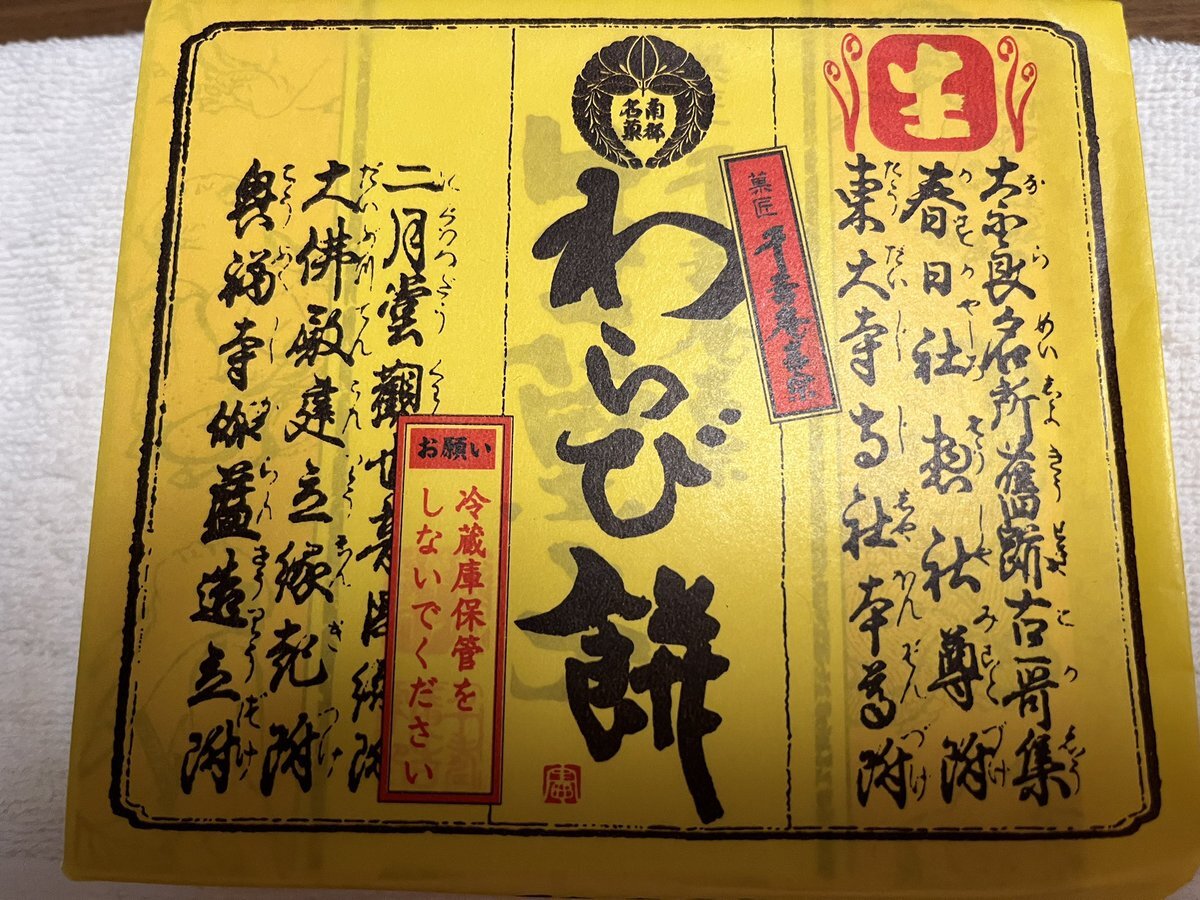 生
奈良名所舊跡古哥集
春日社惣社尊附
東大寺寺社本尊附
南都
名菓
菓匠 千壽庵吉宗
わらび餅
二月堂觀世音
大佛殿建立縁起附
興福寺伽藍造立附
お願い
冷蔵庫保管を
しないでください